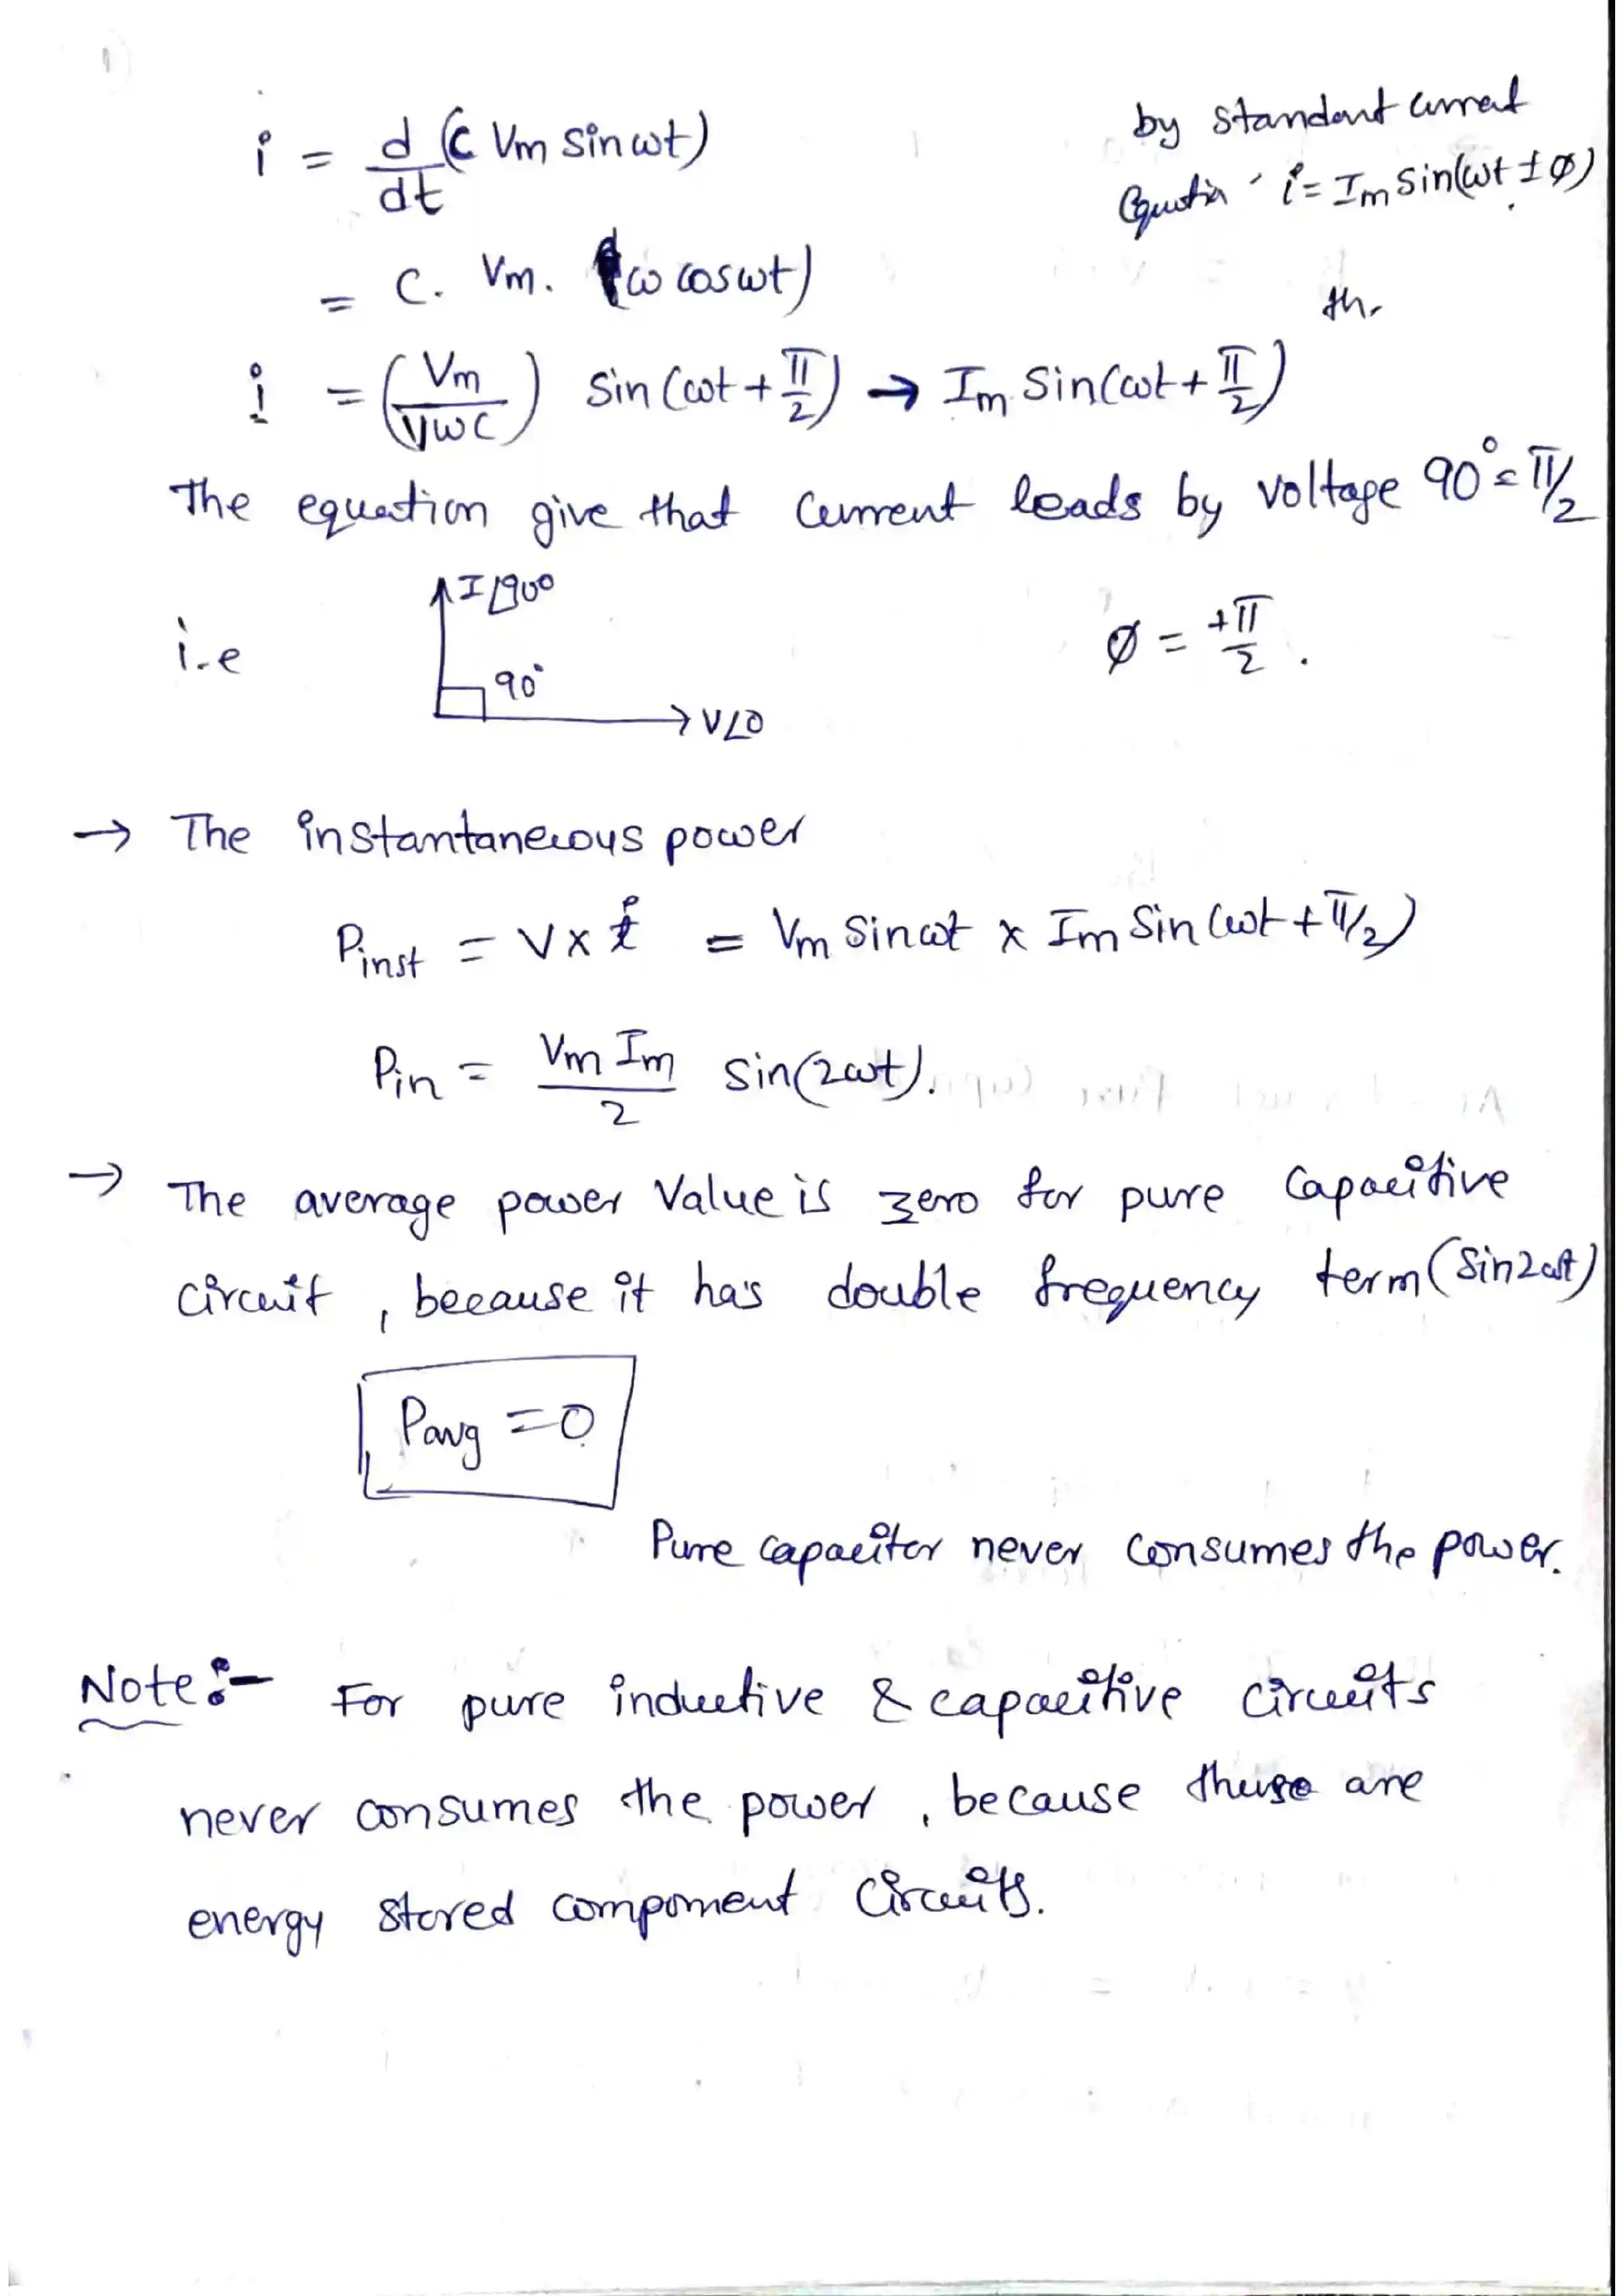 i = d/dt (C Vm sin ωt)
by standard current
Equation i = Im sin(ωt ± φ)
= C. Vm. (ω cos ωt)
the
i = (Vm / 1/ωC) sin(ωt + π/2) → Im sin(ωt + π/2)
The equation give that current leads by voltage 90° = π/2
i.e
I∠90°
90°
V∠0
φ = +π/2 .
→ The instantaneous power
Pinst = V x i = Vm sin ωt x Im sin(ωt + π/2)
Pin = Vm Im / 2 sin(2ωt).
→ The average power value is zero for pure capacitive
circuit , because it has double frequency term (sin 2ωt)
Pavg = 0
Pure capacitor never consumes the power.
Note :- For pure inductive & capacitive circuits
never consumes the power , because these are
energy stored component circuits.